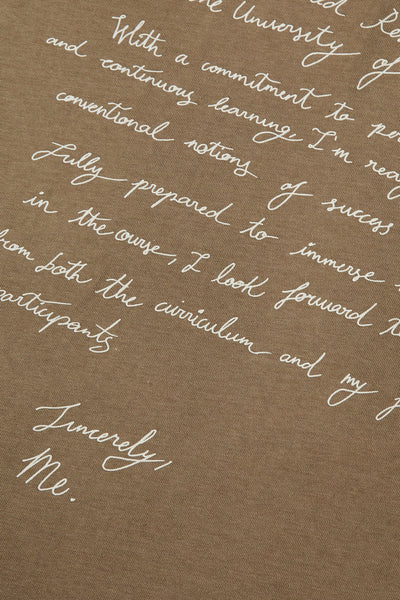 and Re
the University of
With a commitment to pe
and continuous learning, I'm rea
conventional notions of success
Fully prepared to immerse
in the course, I look forward t
from both the curriculum and my f
participants.
Sincerely,
Me.